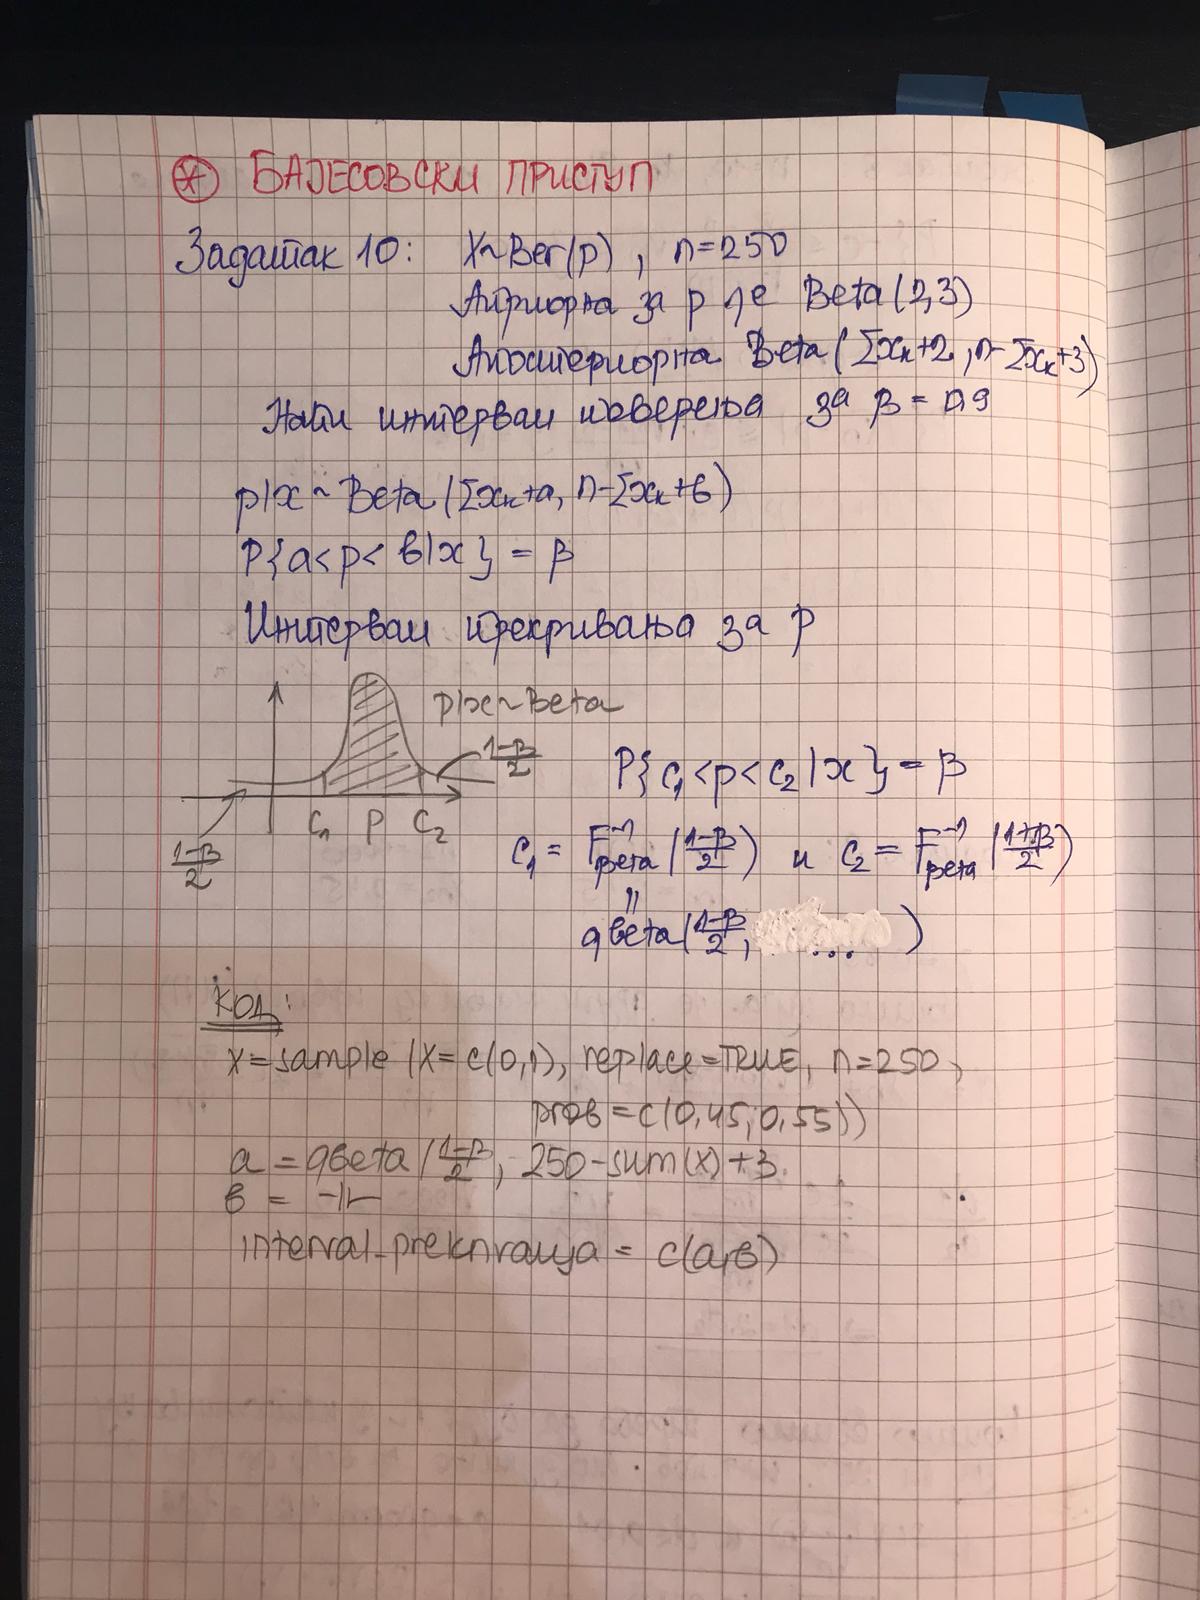 ⊛ БАЈЕСОВСКИ ПРИСТУП
Задатак 10: X~Ber(p), n=250
Априорна за p је Beta(2,3)
Апостериорна Beta(∑xₖ+2, n-∑xₖ+3)
Наћи интервал поверења за β = 0.9
p|x ~ Beta(∑xₖ+a, n-∑xₖ+b)
P{a<p<b|x} = β
Интервал прекривања за p
p|x~Beta
(1-β)/2
P{c₁<p<c₂|x} = β
c₁ p c₂
(1-β)/2
c₁ = F⁻¹Beta((1-β)/2) и c₂ = F⁻¹Beta((1+β)/2)
"
qbeta((1-β)/2, ...)
КОД:
X = sample(X = c(0,1), replace=TRUE, n=250,
prob = c(0,45, 0,55))
a = qbeta((1-β)/2, 250-sum(X)+3
b = -||-
interval_prekrivanja = c(a,b)